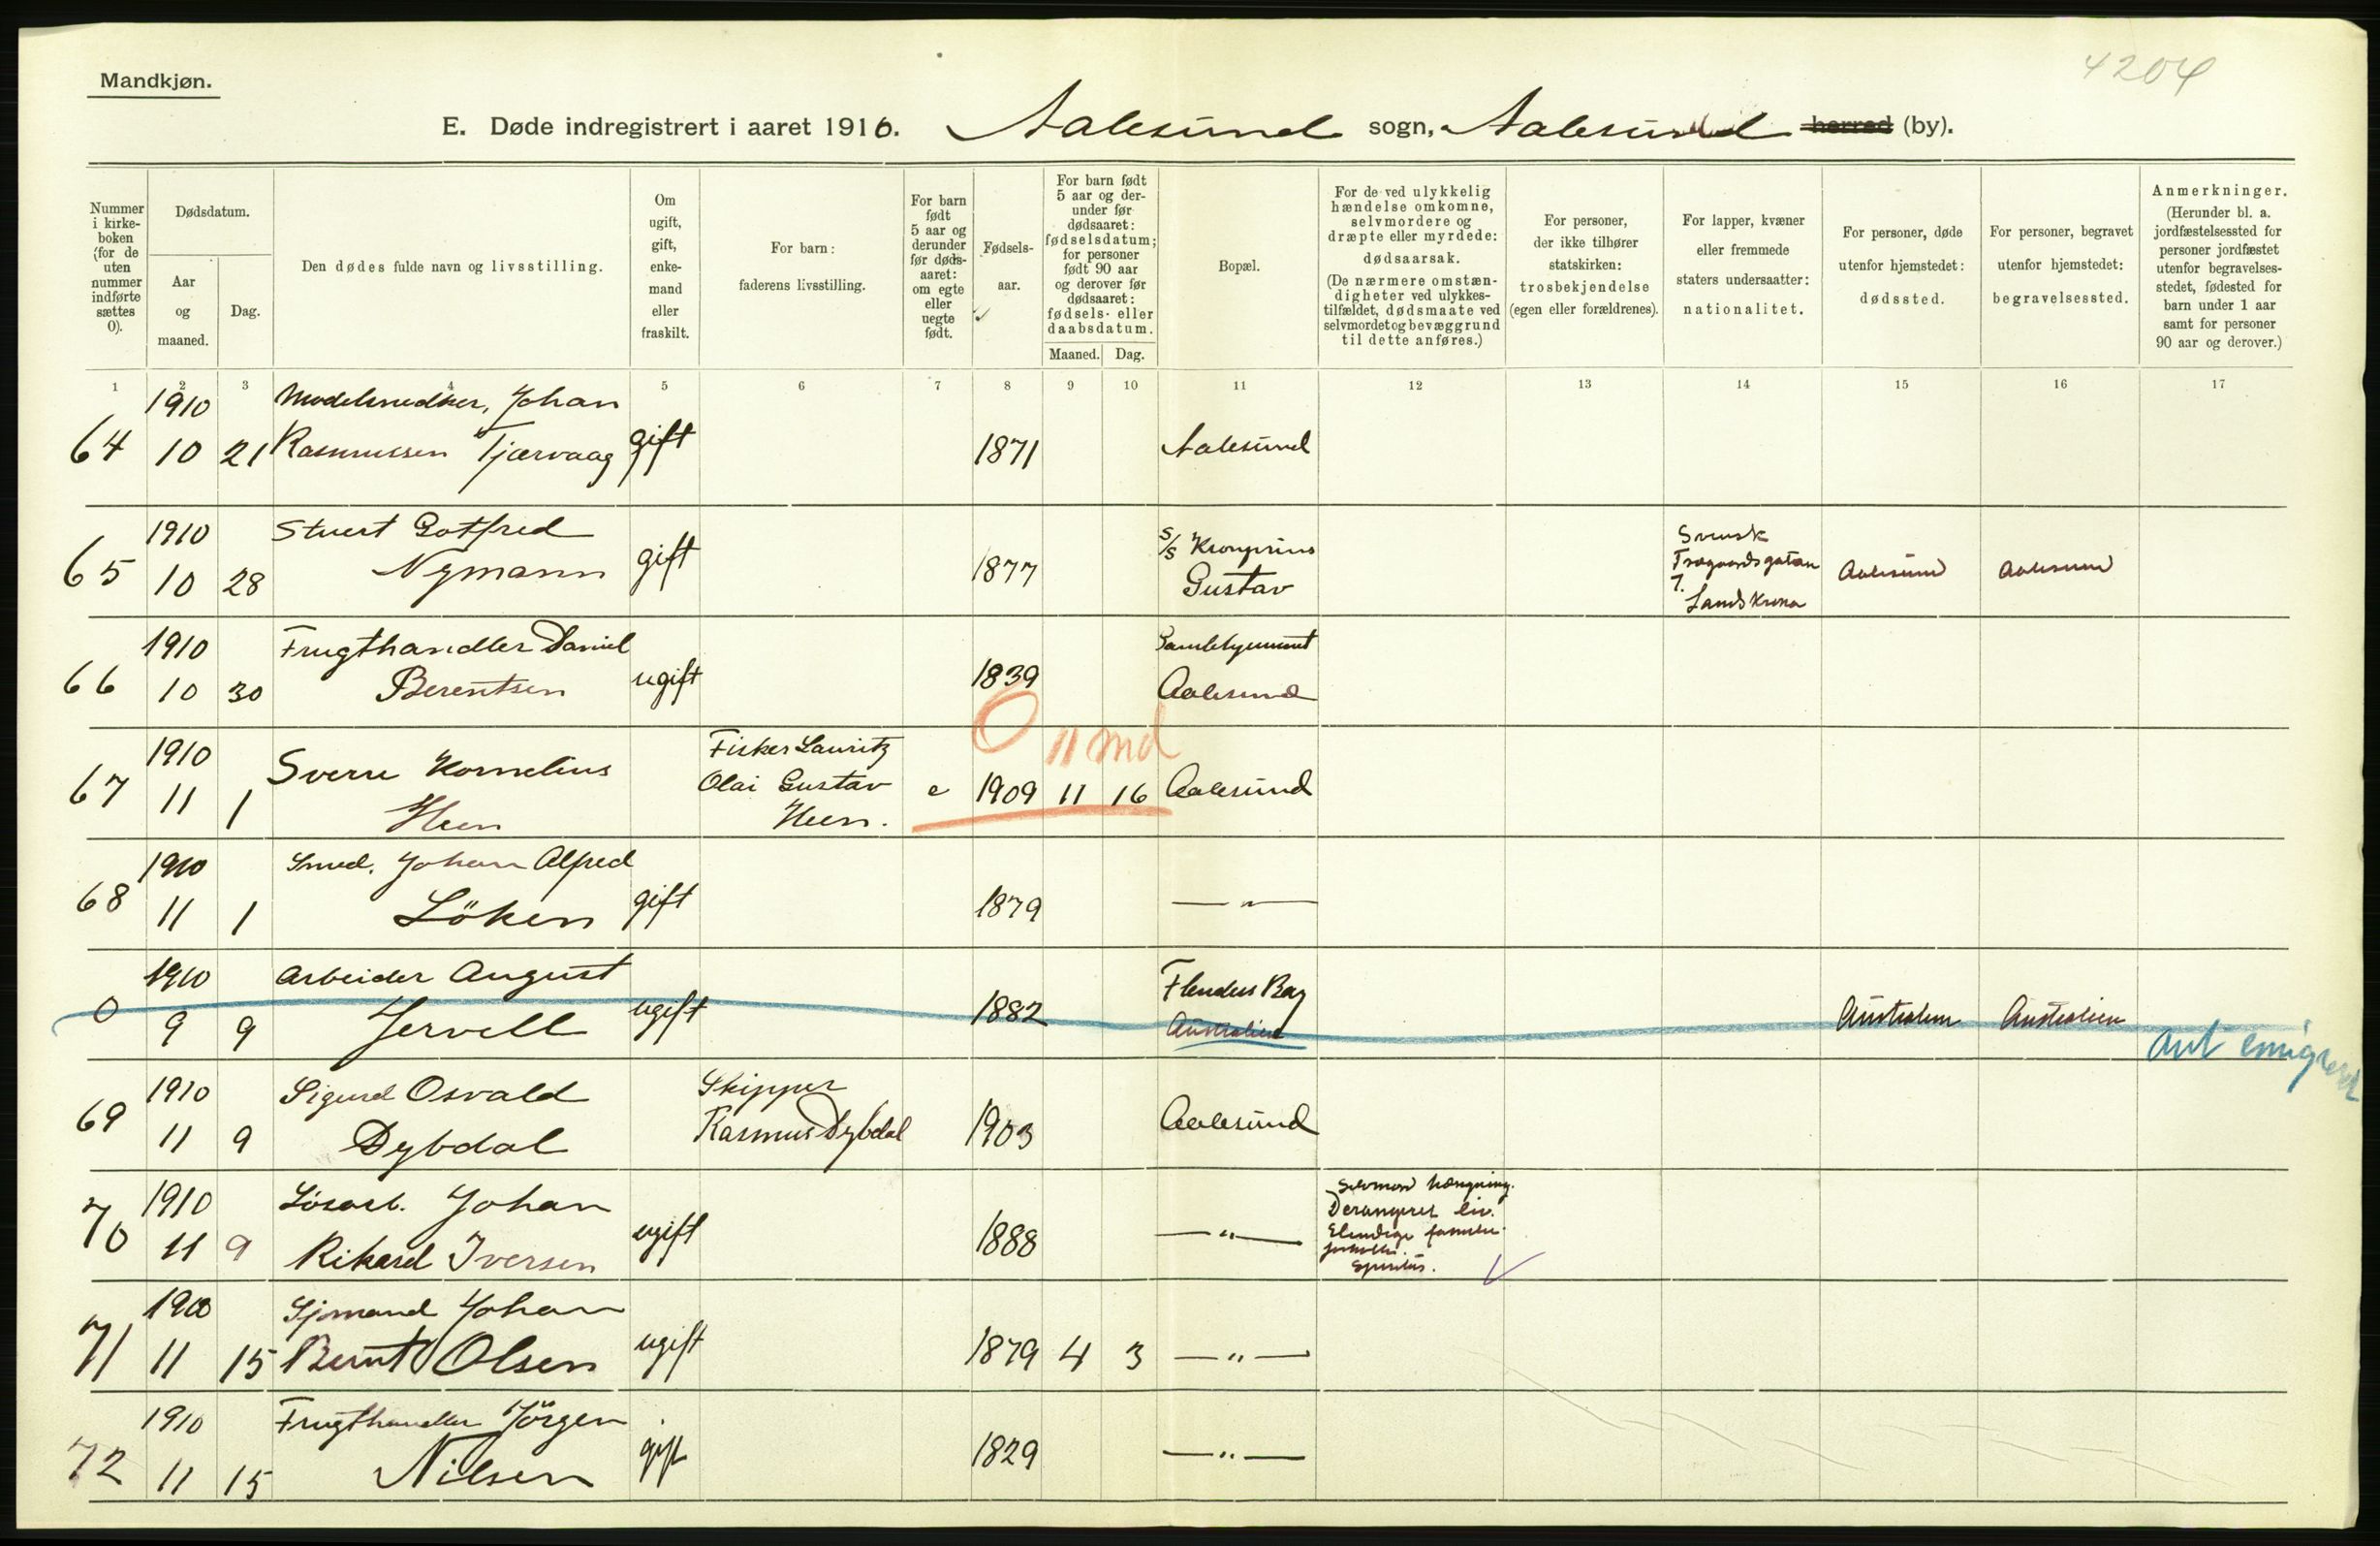 Mandkjøn.
4204
E. Døde indregistrert i aaret 1910. Aalesund sogn, Aalesund herred (by).
Nummer i kirke-boken (for de uten nummer indførte sættes 0).
Dødsdatum.
Aar og maaned.
Dag.
Den dødes fulde navn og livsstilling.
Om ugift, gift, enke-mand eller fraskilt.
For barn: faderens livsstilling.
For barn født 5 aar og derunder før døds-aaret: om egte eller uegte født.
Fødsels-aar.
For barn født 5 aar og der-under før dødsaaret: fødselsdatum; for personer født 90 aar og derover før dødsaaret: fødsels- eller daabsdatum.
Maaned. Dag.
Bopæl.
For de ved ulykkelig hændelse omkomne, selvmordere og dræpte eller myrdede: dødsaarsak.
(De nærmere omstæn-digheter ved ulykkes-tilfældet, dødsmaate ved selvmordet og bevæggrund til dette anføres.)
For personer, der ikke tilhører statskirken: trosbekjendelse (egen eller forældrenes).
For lapper, kvæner eller fremmede staters undersaatter: nationalitet.
For personer, døde utenfor hjemstedet: dødssted.
For personer, begravet utenfor hjemstedet: begravelsessted.
Anmerkninger.
(Herunder bl. a. jordfæstelsessted for personer jordfæstet utenfor begravelses-stedet, fødested for barn under 1 aar samt for personer 90 aar og derover.)
1 2 3 4 5 6 7 8 9 10 11 12 13 14 15 16 17
1910 Modelsnedker, Johan
64 10 21 Rasmussen Tjærvaag gift 1871 Aalesund
1910 Stuert Gotfred
65 10 28 Nymann gift 1877 S/S Kronprins Gustav
Svensk
Trægaardsgatan
7.
Landskrona
Aalesund Aalesund
1910 Frugthandler Daniel
66 10 30 Berentsen ugift 1839 Gamlehjemmet Aalesund
0 11 md
1910 Sverre Kornelius Fisker Lauritz
67 11 1 Heen Olai Gustav Heen. e 1909 11 16 Aalesund
1910 Smed, Johan Alfred
68 11 1 Löken gift 1879 — " —
1910 Arbeider August
0 9 9 Jervell ugift 1882 Flenders Bay
Australien Australien Australien
Ant emigreret
1910 Sigurd Osvald Skipper
69 11 9 Dybdal Rasmus Dybdal 1903 Aalesund
1910 Lösarb. Johan
70 11 9 Rikard Iversen ugift 1888 — " —
Selvmord hængning.
Derangeret liv.
Elendige familie
forholde.
Spiritus.
1910 Sjømand Johan
71 11 15 Bernt Olsen ugift 1879 4 3 — " —
1910 Frugthandler Jörgen
72 11 15 Nilsen gift 1829 — " —